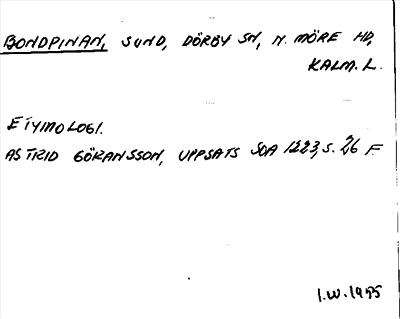 BONDPINAN, SUND, DÖRBY SN, N. MÖRE HD,
KALM. L.
ETYMOLOGI.
ASTRID GÖRANSSON, UPPSATS SOA 1223, S. 26 F.
I.W. 1955